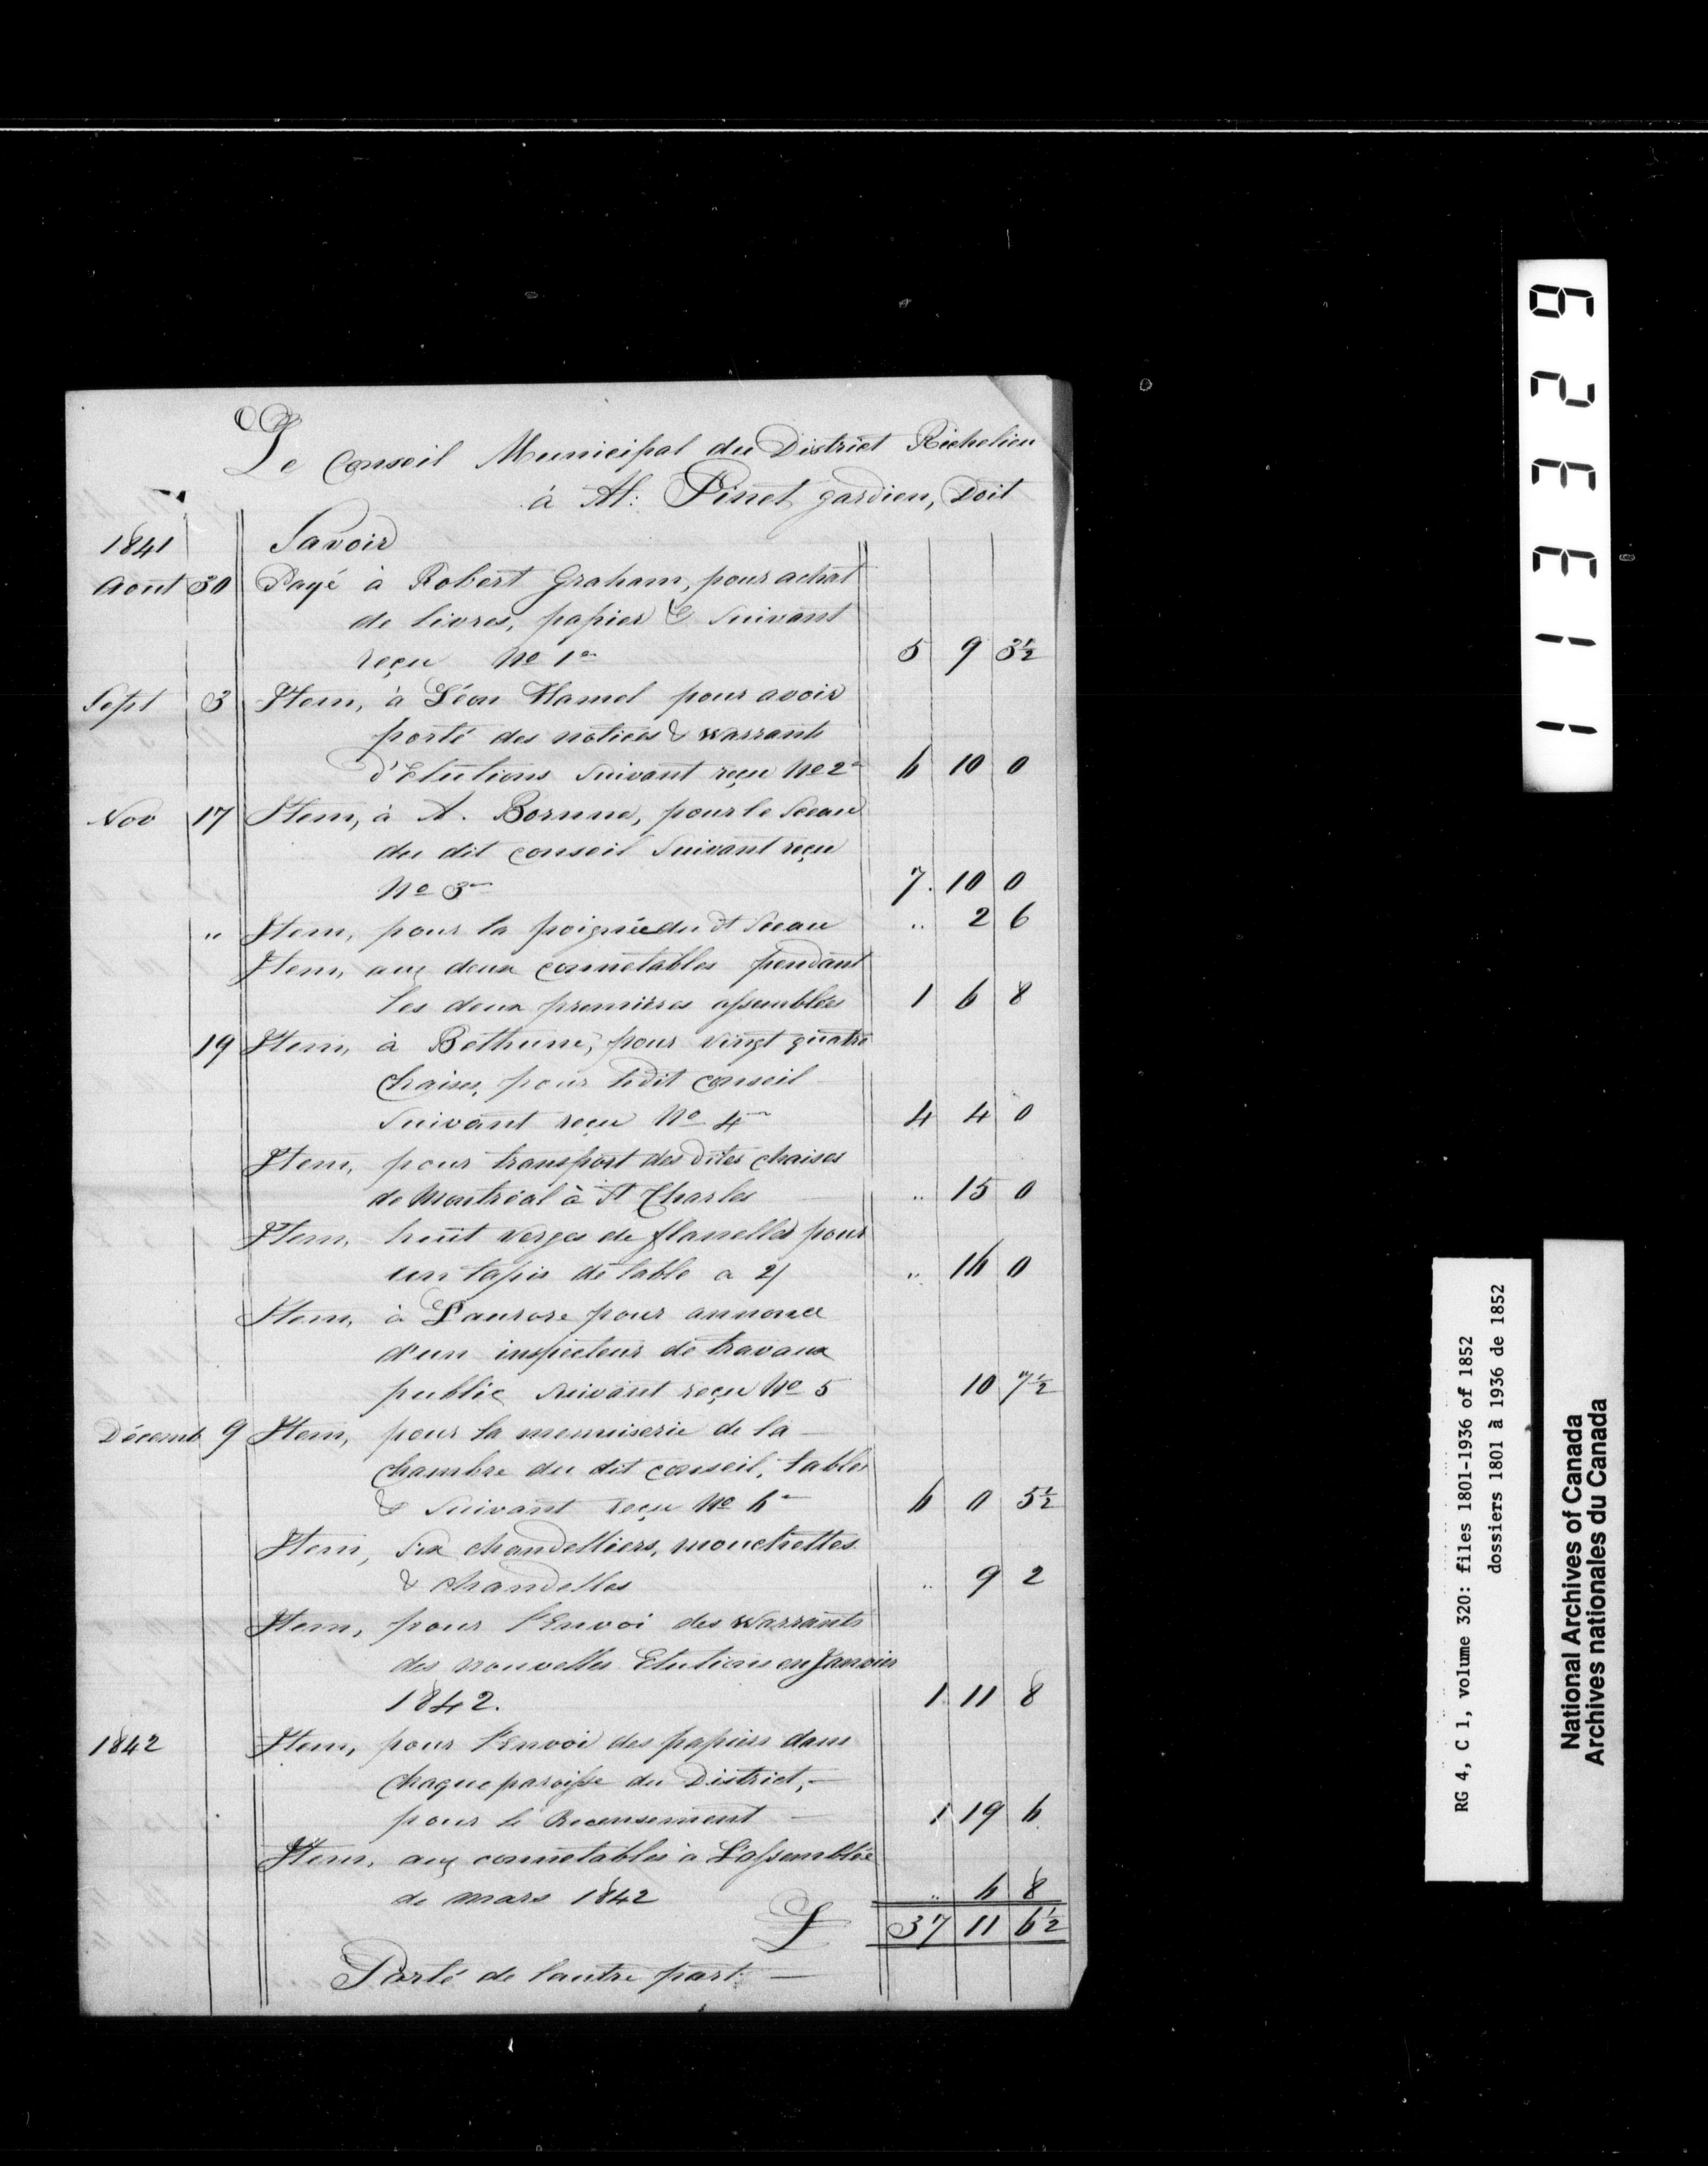 Le Conseil Municipal du District Richelieu
à Al: Pinet gardien, Doit
1841 Savoir
Aout 30 Payé à Robert Graham, pour achat
de livres, papier & Suivant
reçu No 1er 5 9 3½
Sept 3 Item, à Léon Hamel pour avoir
porté des notices & warrants
d'Elections Suivant reçu No 2e 6 10 0
Nov 17 Item, à A. Bornne, pour le Sceau
du dit conseil Suivant reçu
No 3e 7. 10 0
" Item, pour la poignée du dt Sceau " 2 6
Item, aux deux connétables pendant
les deux premières assemblées 1 6 8
19 Item, à Bethune, pour vingt quatre
Chaises, pour ledit conseil
Suivant reçu No 4e 4 4 0
Item, pour transport des dites chaises
de Montréal à St Charles " 15 0
Item, huit verges de flanelles pour
un tapis de table a 2/ " 16 0
Item, à L'aurore pour annonce
d'un inspecteur de travaux
public Suivant reçu No 5 10 7½
Décemb 9 Item, pour la menuiserie de la
chambre du dit conseil, tables
& Suivant reçu No 6e 6 0 5½
Item, Six chandelliers, mouchettes
& chandelles " 9 2
Item, pour l'Envoi des Warrants
des nouvelles Elections en Janvier
1842. 1 11 8
1842 Item, pour l'Envoi des papiers dans
chaque paroisse du District,
pour le Recensement 1 19 6
Item, aux connétables à L'assemblée
de mars 1842 " 6 8
£ 37 11 6½
Porté de l'autre part
113329
RG 4, C 1, volume 320: files 1801-1936 of 1852
dossiers 1801 à 1936 de 1852
National Archives of Canada
Archives nationales du Canada